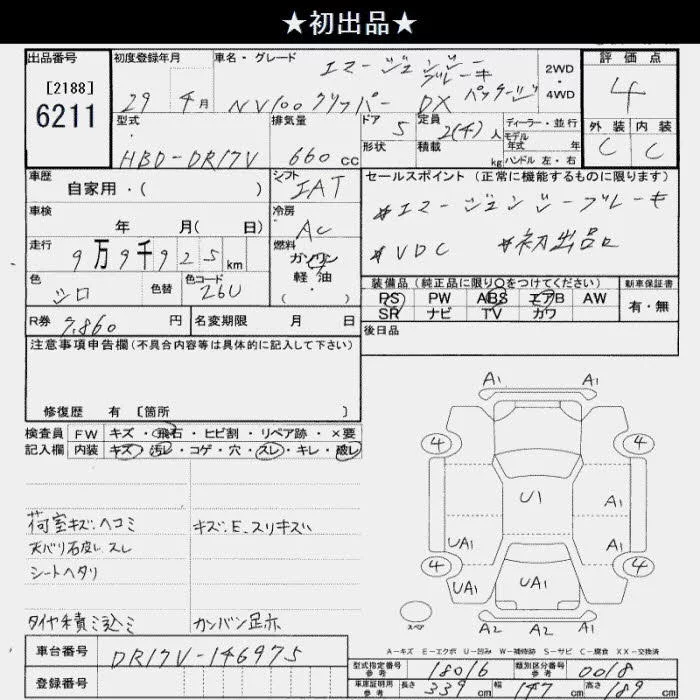 ★初出品★
出品番号 初度登録年月 車名・グレード エマージェンシーブレーキ 2WD 評価点
[2188]
6211 29年 4月 NV100クリッパー DX パッケージ ・4WD 4
型式 排気量 ドア 5 定員 2(4)人 ディーラー・並行 外装 内装
HBD-DR17V 660cc 形状 積載 kg モデル年式 年 C C
ハンドル 左・右
車歴 自家用・( ) シフト IAT セールスポイント (正常に機能するものに限ります)
車検 年 月( 日) 冷房 AC #エマージェンシーブレーキ
走行 9万9千925km 燃料 ガソリン #VDC #初出品
軽・油
・( )
色 シロ 色替 色コード 26U 装備品(純正品に限り○をつけてください) 新車保証書
PS PW ABS エアB AW 有・無
SR ナビ TV カワ
R券 7,860円 名変期限 月 日 後日品
注意事項申告欄(不具合内容等は具体的に記入して下さい)
修復歴 有 [箇所 ]
検査員 FW キズ・飛石・ヒビ割・リペア跡・×要
記入欄 内装 キズ・汚レ・コゲ・穴・スレ・キレ・破レ
A1 A1
4 4
U1 A1
UA1 A1
4 4
UA1 UA1 A1
A2 A2
スペア
荷室キズ.ヘコミ キズ.E.スリキズ
天バリ スレ
シートヘタリ
タイヤ積ミ込ミ カンバン足ホ
A-キズ E-エクボ U-凹み W-補修跡 S-サビ C-腐食 XX-交換済
車台番号 DR17V-146975
登録番号
型式指定番号 参考 18016 類別区分番号 参考 0018
車庫証明用 参考 長さ 339cm 幅 147cm 高さ 189cm